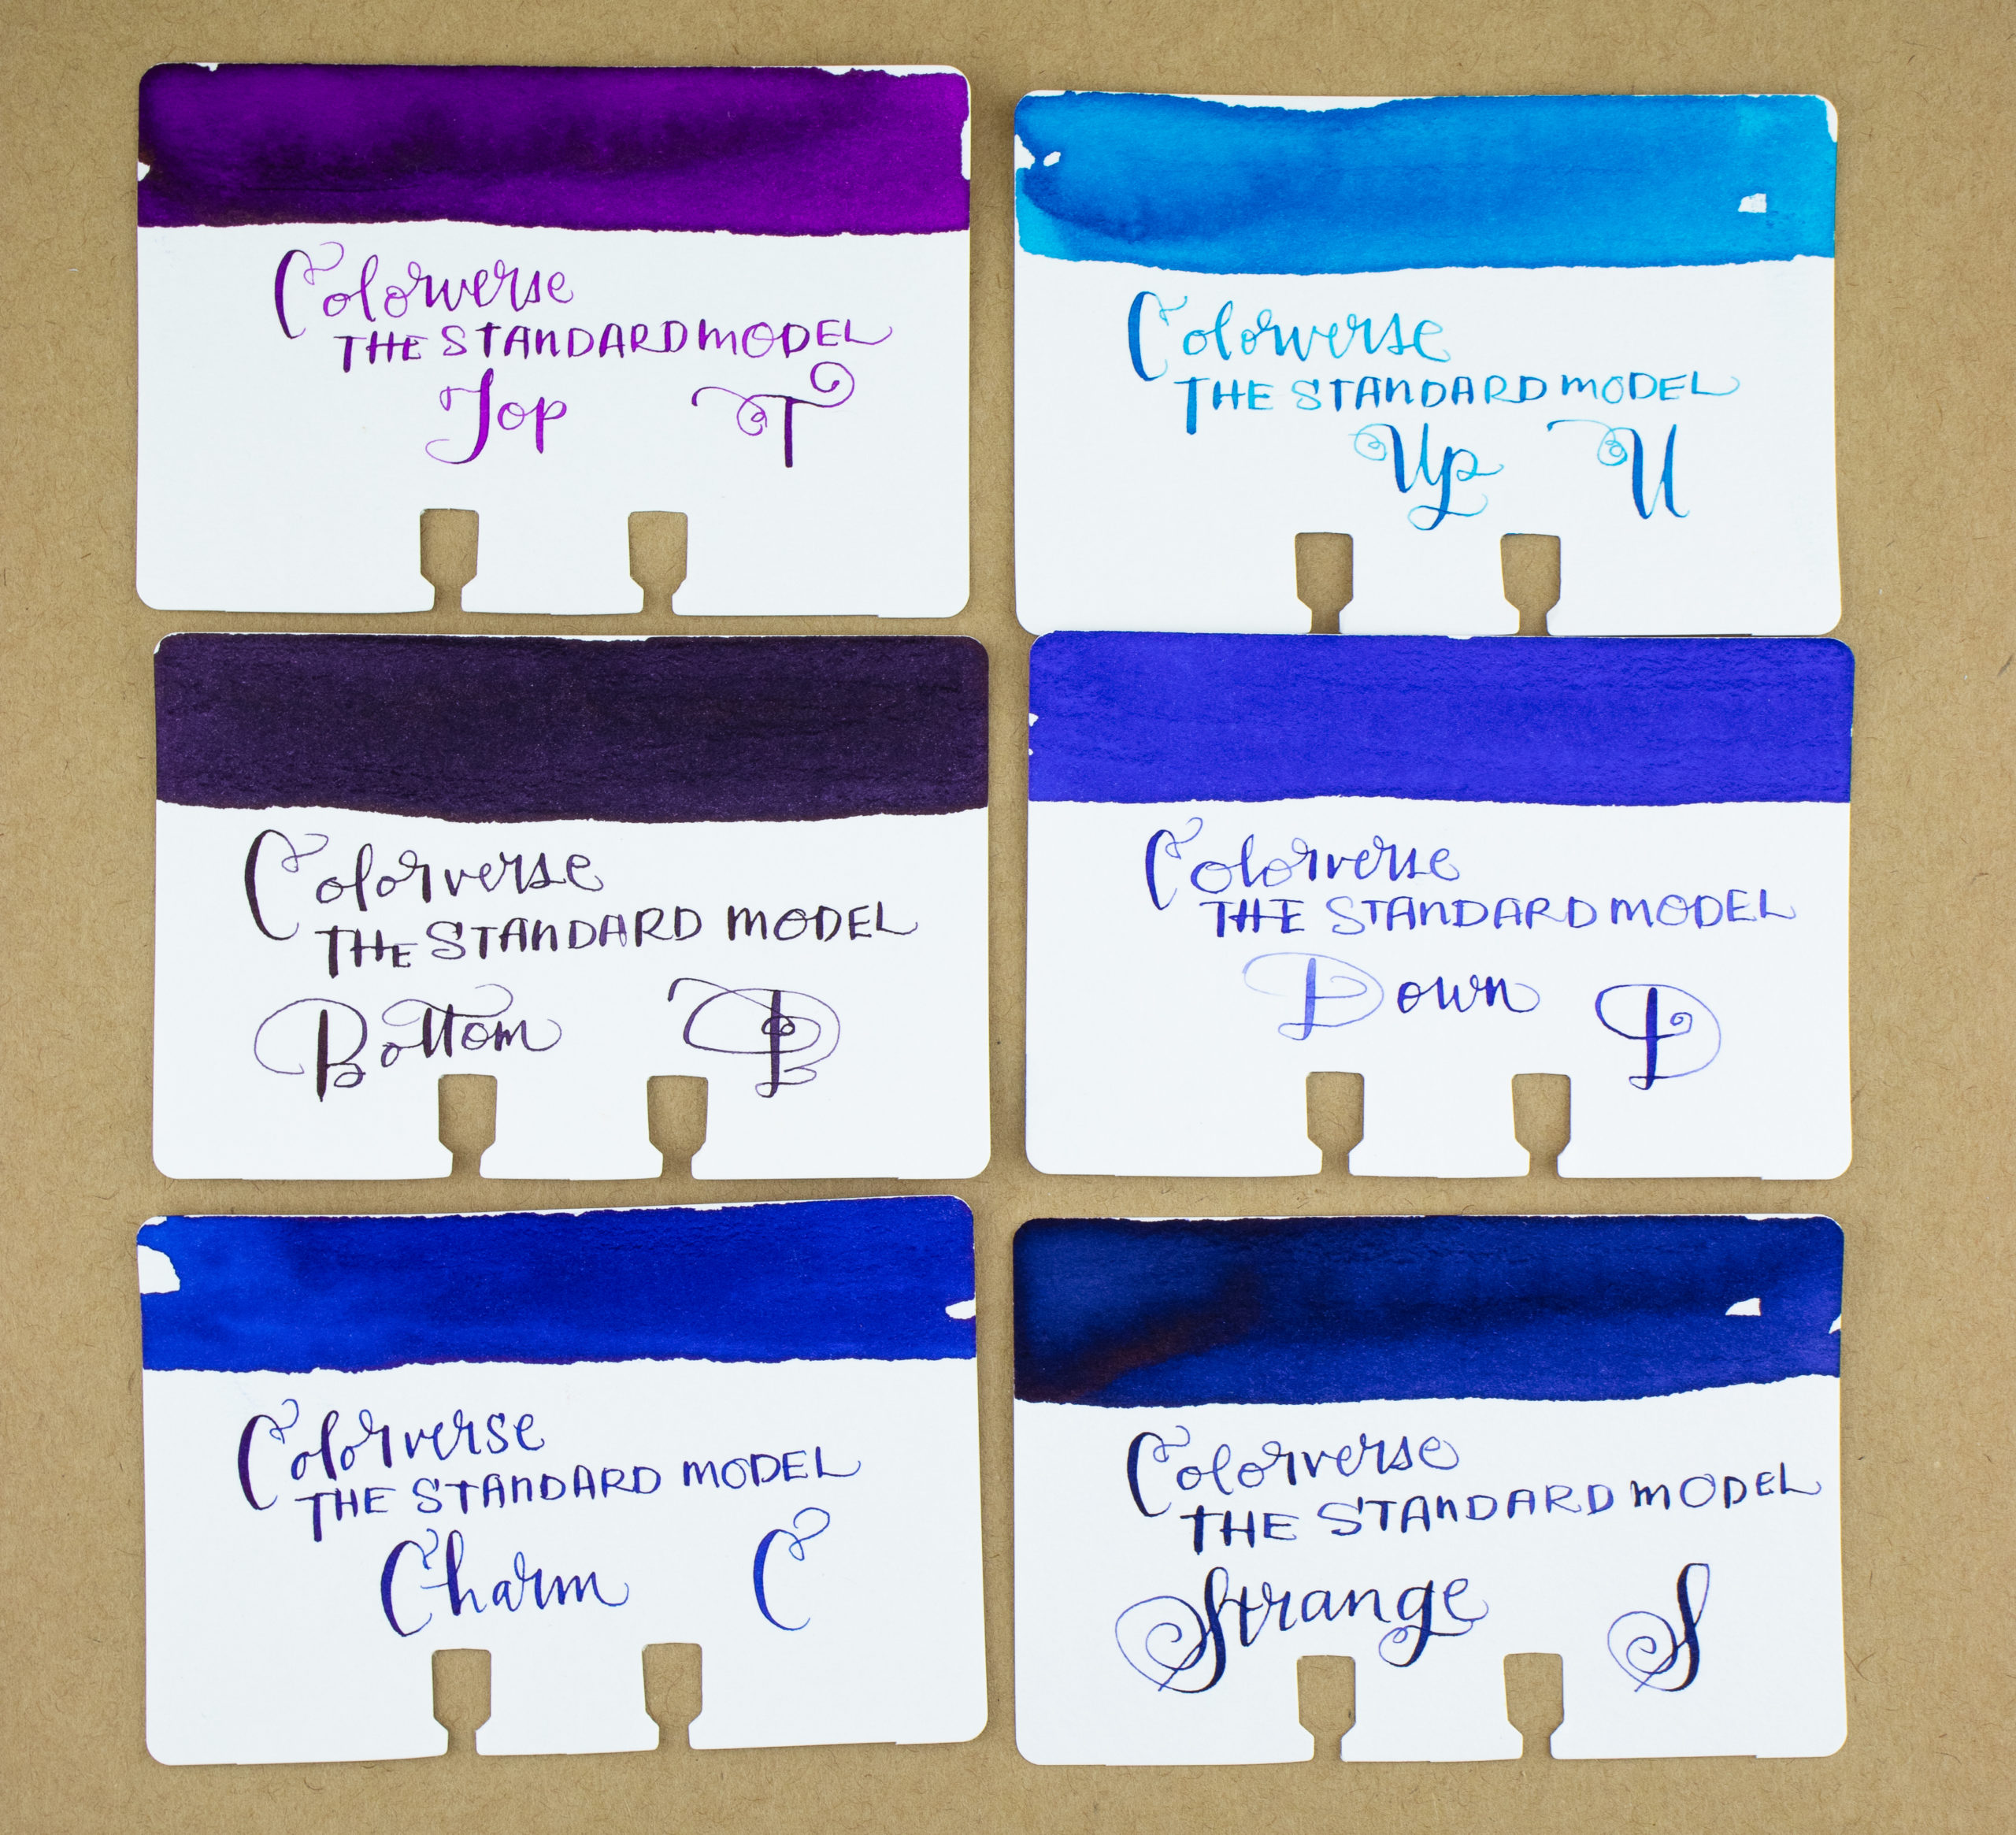 Colorverse
THE STANDARD MODEL
Top T
Colorverse
THE STANDARD MODEL
Up U
Colorverse
THE STANDARD MODEL
Bottom B
Colorverse
THE STANDARD MODEL
Down D
Colorverse
THE STANDARD MODEL
Charm C
Colorverse
THE STANDARD MODEL
Strange S